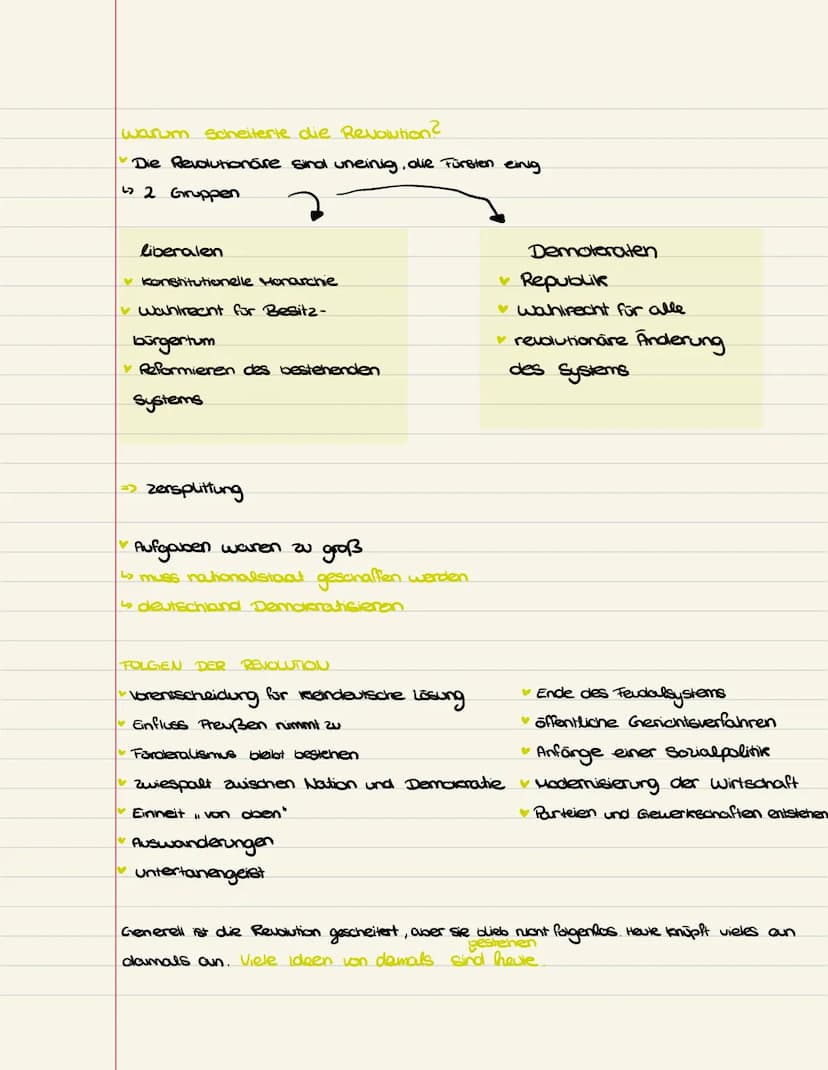 Warum scheiterte die Revolution?
Die Revolutionäre sind uneinig, die Fürsten einig
↳ 2 Gruppen
liberalen
konstitutionelle Monarchie
Wahlrecht für Besitz-
bürgertum
Reformieren des bestehenden
Systems
Demokraten
Republik
Wahlrecht für alle
revolutionäre Änderung
des Systems
=> zersplittung
Aufgaben waren zu groß
↳ muss nationalstaat geschaffen werden
↳ deutschland Demokratisieren
FOLGEN DER REVOLUTION
Vorentscheidung für kleindeutsche Lösung
Einfluss Preußen nimmt zu
Förderalismus bleibt bestehen
Zwiespalt zwischen Nation und Demokratie
Einheit „von oben"
Auswanderungen
untertanengeist
Ende des Feudalsystems
öffentliche Gerichtsverfahren
Anfänge einer Sozialpolitik
Modernisierung der Wirtschaft
Parteien und Gewerkschaften entstehen
Generell ist die Revolution gescheitert, aber sie blieb nicht folgenlos. Heute knüpft vieles an
bestehen
damals an. Viele Ideen von damals sind heute.